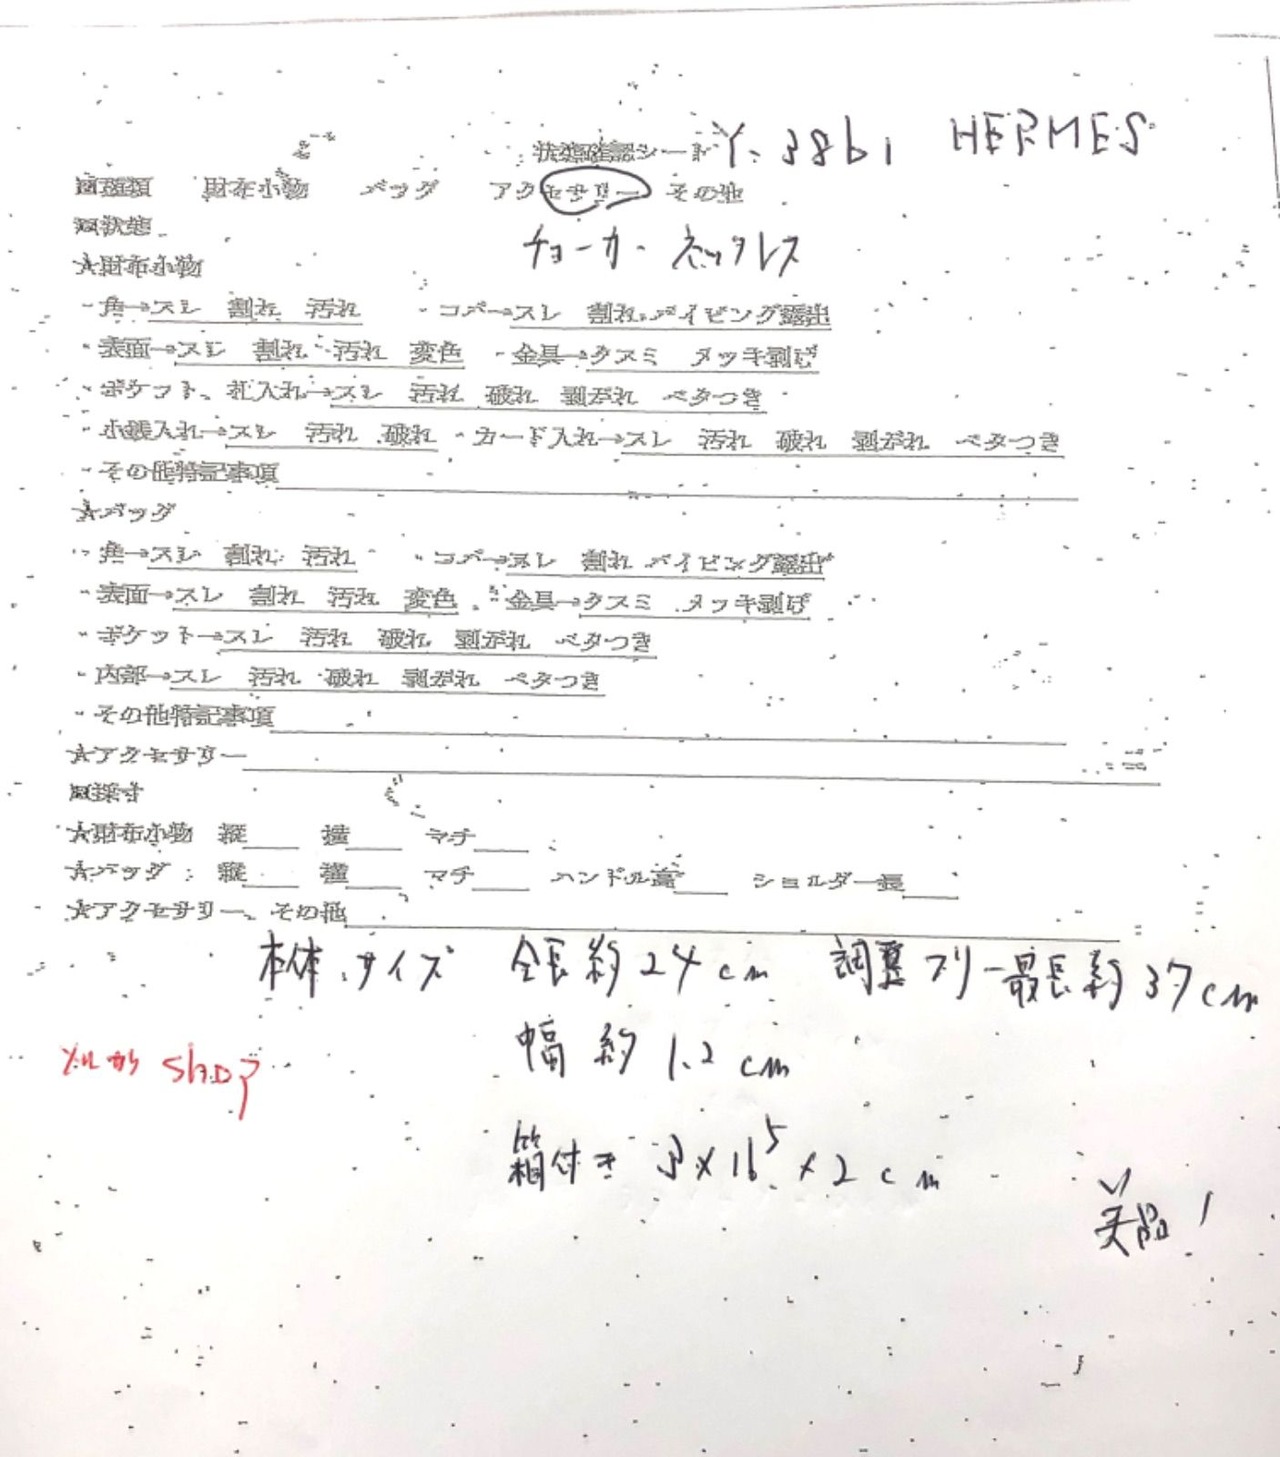 状態確認シート Y-3861 HERMES
■種類 財布小物 バッグ アクセサリー その他
■状態 チョーカーネックレス
★財布小物
・角→スレ 割れ 汚れ ・コバ→スレ 割れ パイピング露出
・表面→スレ 割れ 汚れ 変色 ・金具→クスミ メッキ剥げ
・ポケット、札入れ→スレ 汚れ 破れ 剥がれ ベタつき
・小銭入れ→スレ 汚れ 破れ ・カード入れ→スレ 汚れ 破れ 剥がれ ベタつき
・その他特記事項
★バッグ
・角→スレ 割れ 汚れ ・コバ→スレ 割れ パイピング露出
・表面→スレ 割れ 汚れ 変色 ・金具→クスミ メッキ剥げ
・ポケット→スレ 汚れ 破れ 剥がれ ベタつき
・内部→スレ 汚れ 破れ 剥がれ ベタつき
・その他特記事項
★アクセサリー
■採寸
★財布小物 縦 横 マチ
★バッグ 縦 横 マチ ハンドル高 ショルダー長
★アクセサリー、その他
本体サイズ 全長約24cm 調整フリー最長約37cm
幅約1.2cm
メルカリ shop
箱付き ×16.5×2cm
美品!